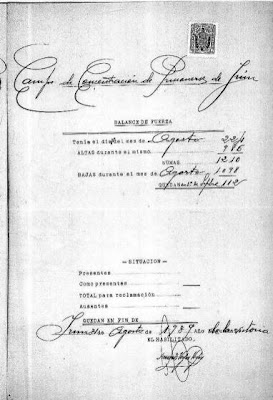 Campo de Concentración de Prisioneros de Irún
BALANCE DE FUERZA
Tenía el día 1º del mes de Agosto 224
ALTAS durante el mismo 986
SUMAN 1210
BAJAS durante el mes de Agosto 1098
QUEDAN en 1º de Sepbre 112
— SITUACION —
Presentes
Como presentes
TOTAL para reclamación
Ausentes
QUEDAN EN FIN DE
Irún Agosto de 1939 Año de la Victoria
EL HABILITADO,